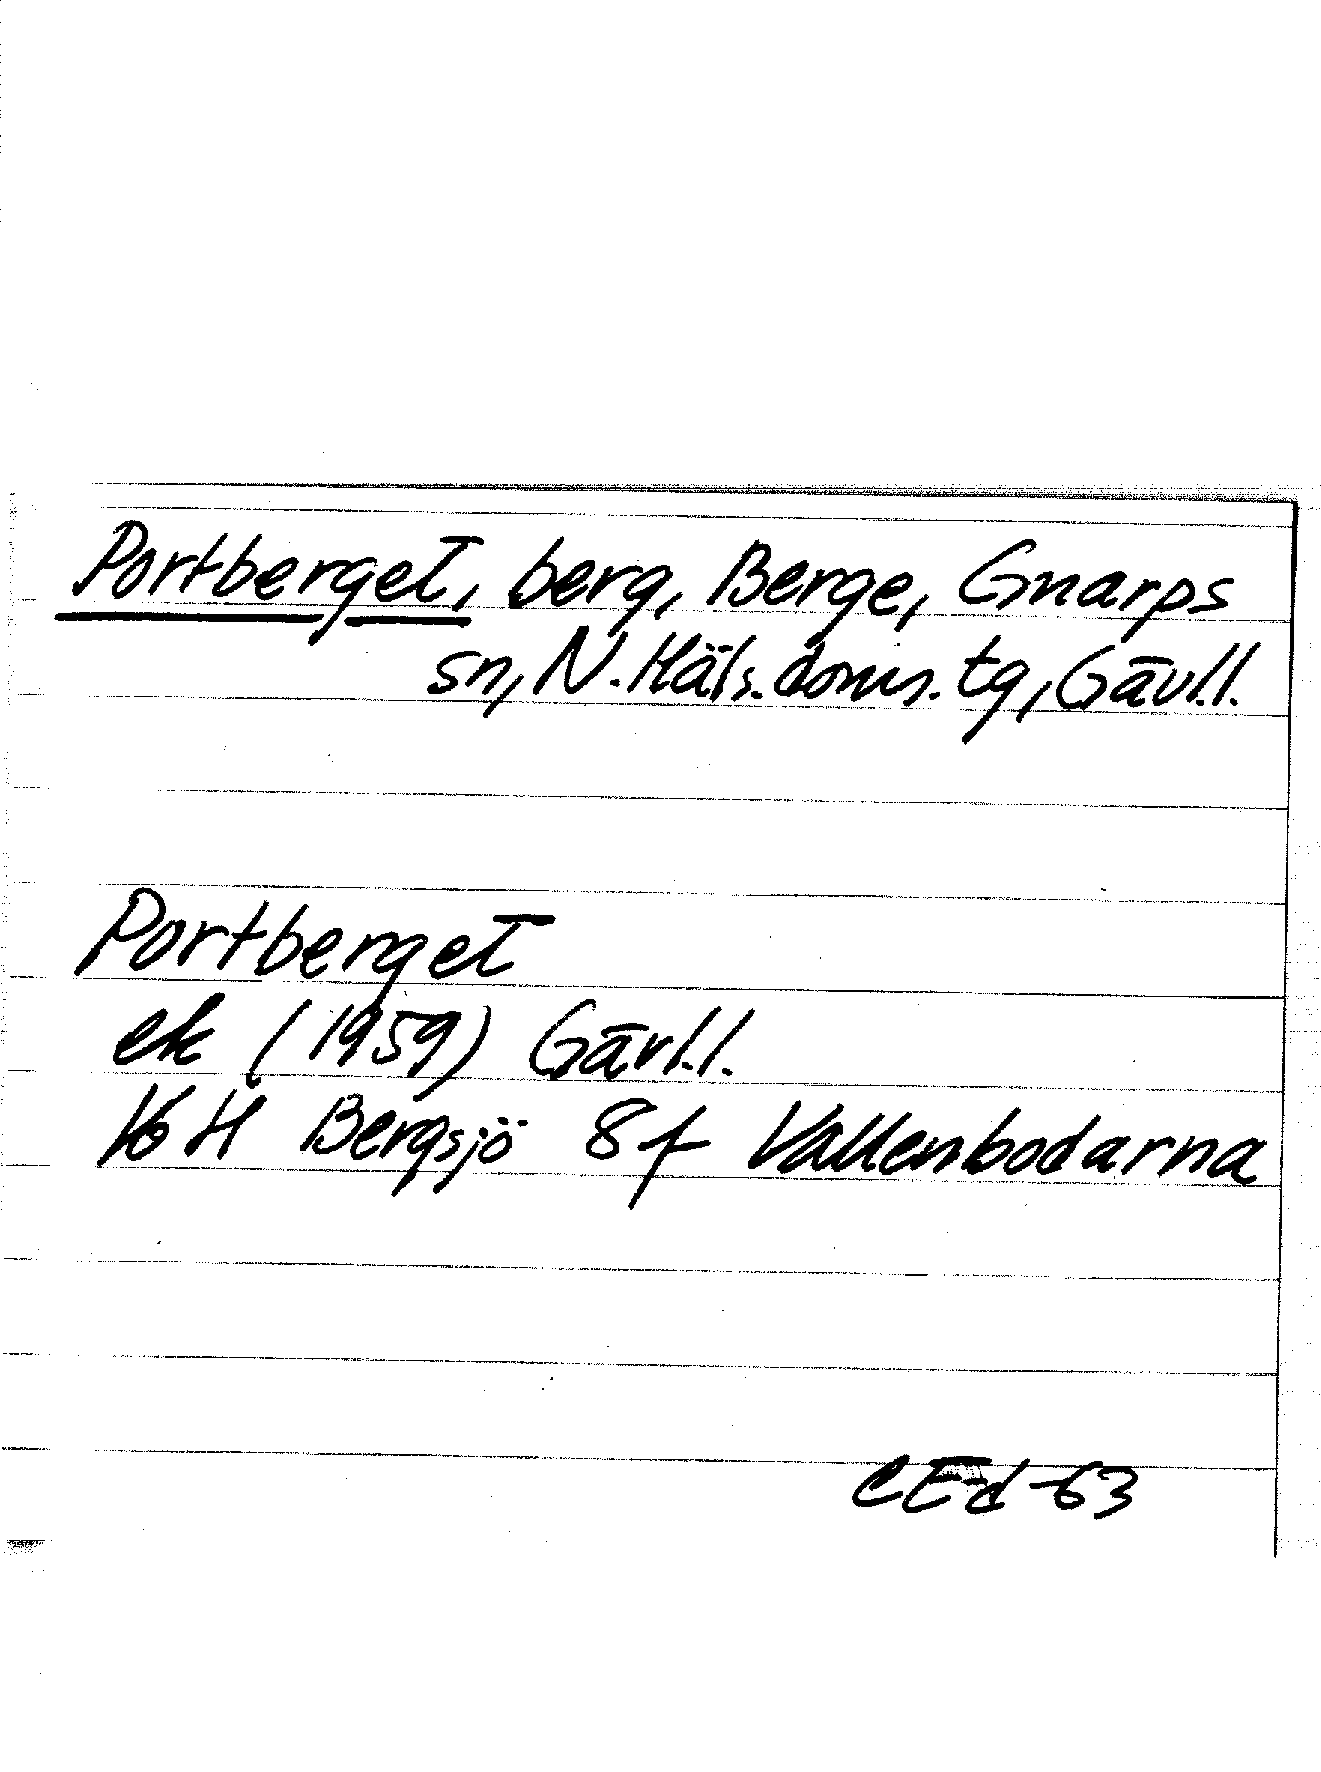 Portberget, berg, Berge, Gnarps
sn, N. Häls. doms. tg, Gävl.l.
Portberget
ek (1959) Gävl.l.
16 H Bergsjö 8 f Vallenbodarna
CEd -63